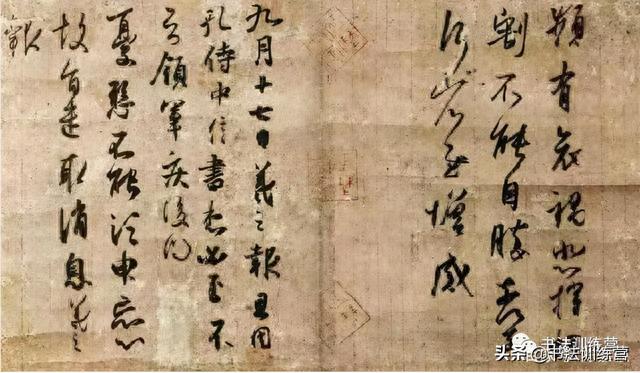 頻有哀禍悲摧切
割不能自勝奈何
奈何省慰增感
九月十七日羲之報且因
孔侍中信書想必至不
知領軍疾後問
憂懸不能須臾忘心
故旨遣取消息羲之
報
书法训练营
头条 @书法训练营